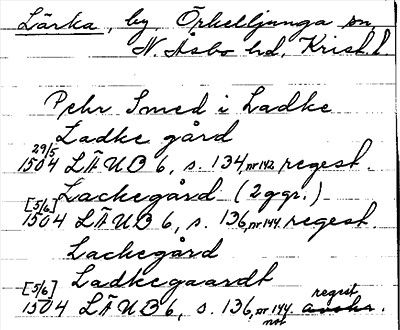 Lärka, by Örkelljunga sn,
N. Åsbo hd, Krist. l.
Pehr Smed i Ladke
Ladke gård
29/5
1504 LÄUB 6, s. 134, nr 142 regest.
Lackegård (2 ggr.)
[5/6]
1504 LÄUB 6, s. 136, nr 144 regest.
Lackegård
Ladkegaardt
[5/6] regest
1504 LÄUB 6, s. 136, nr 144 avskr.
not